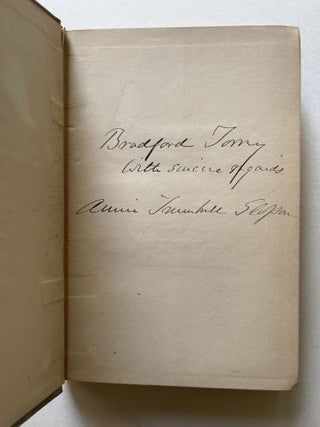 Bradford Torrey
With sincere regards
Annie Trumbull Slosson